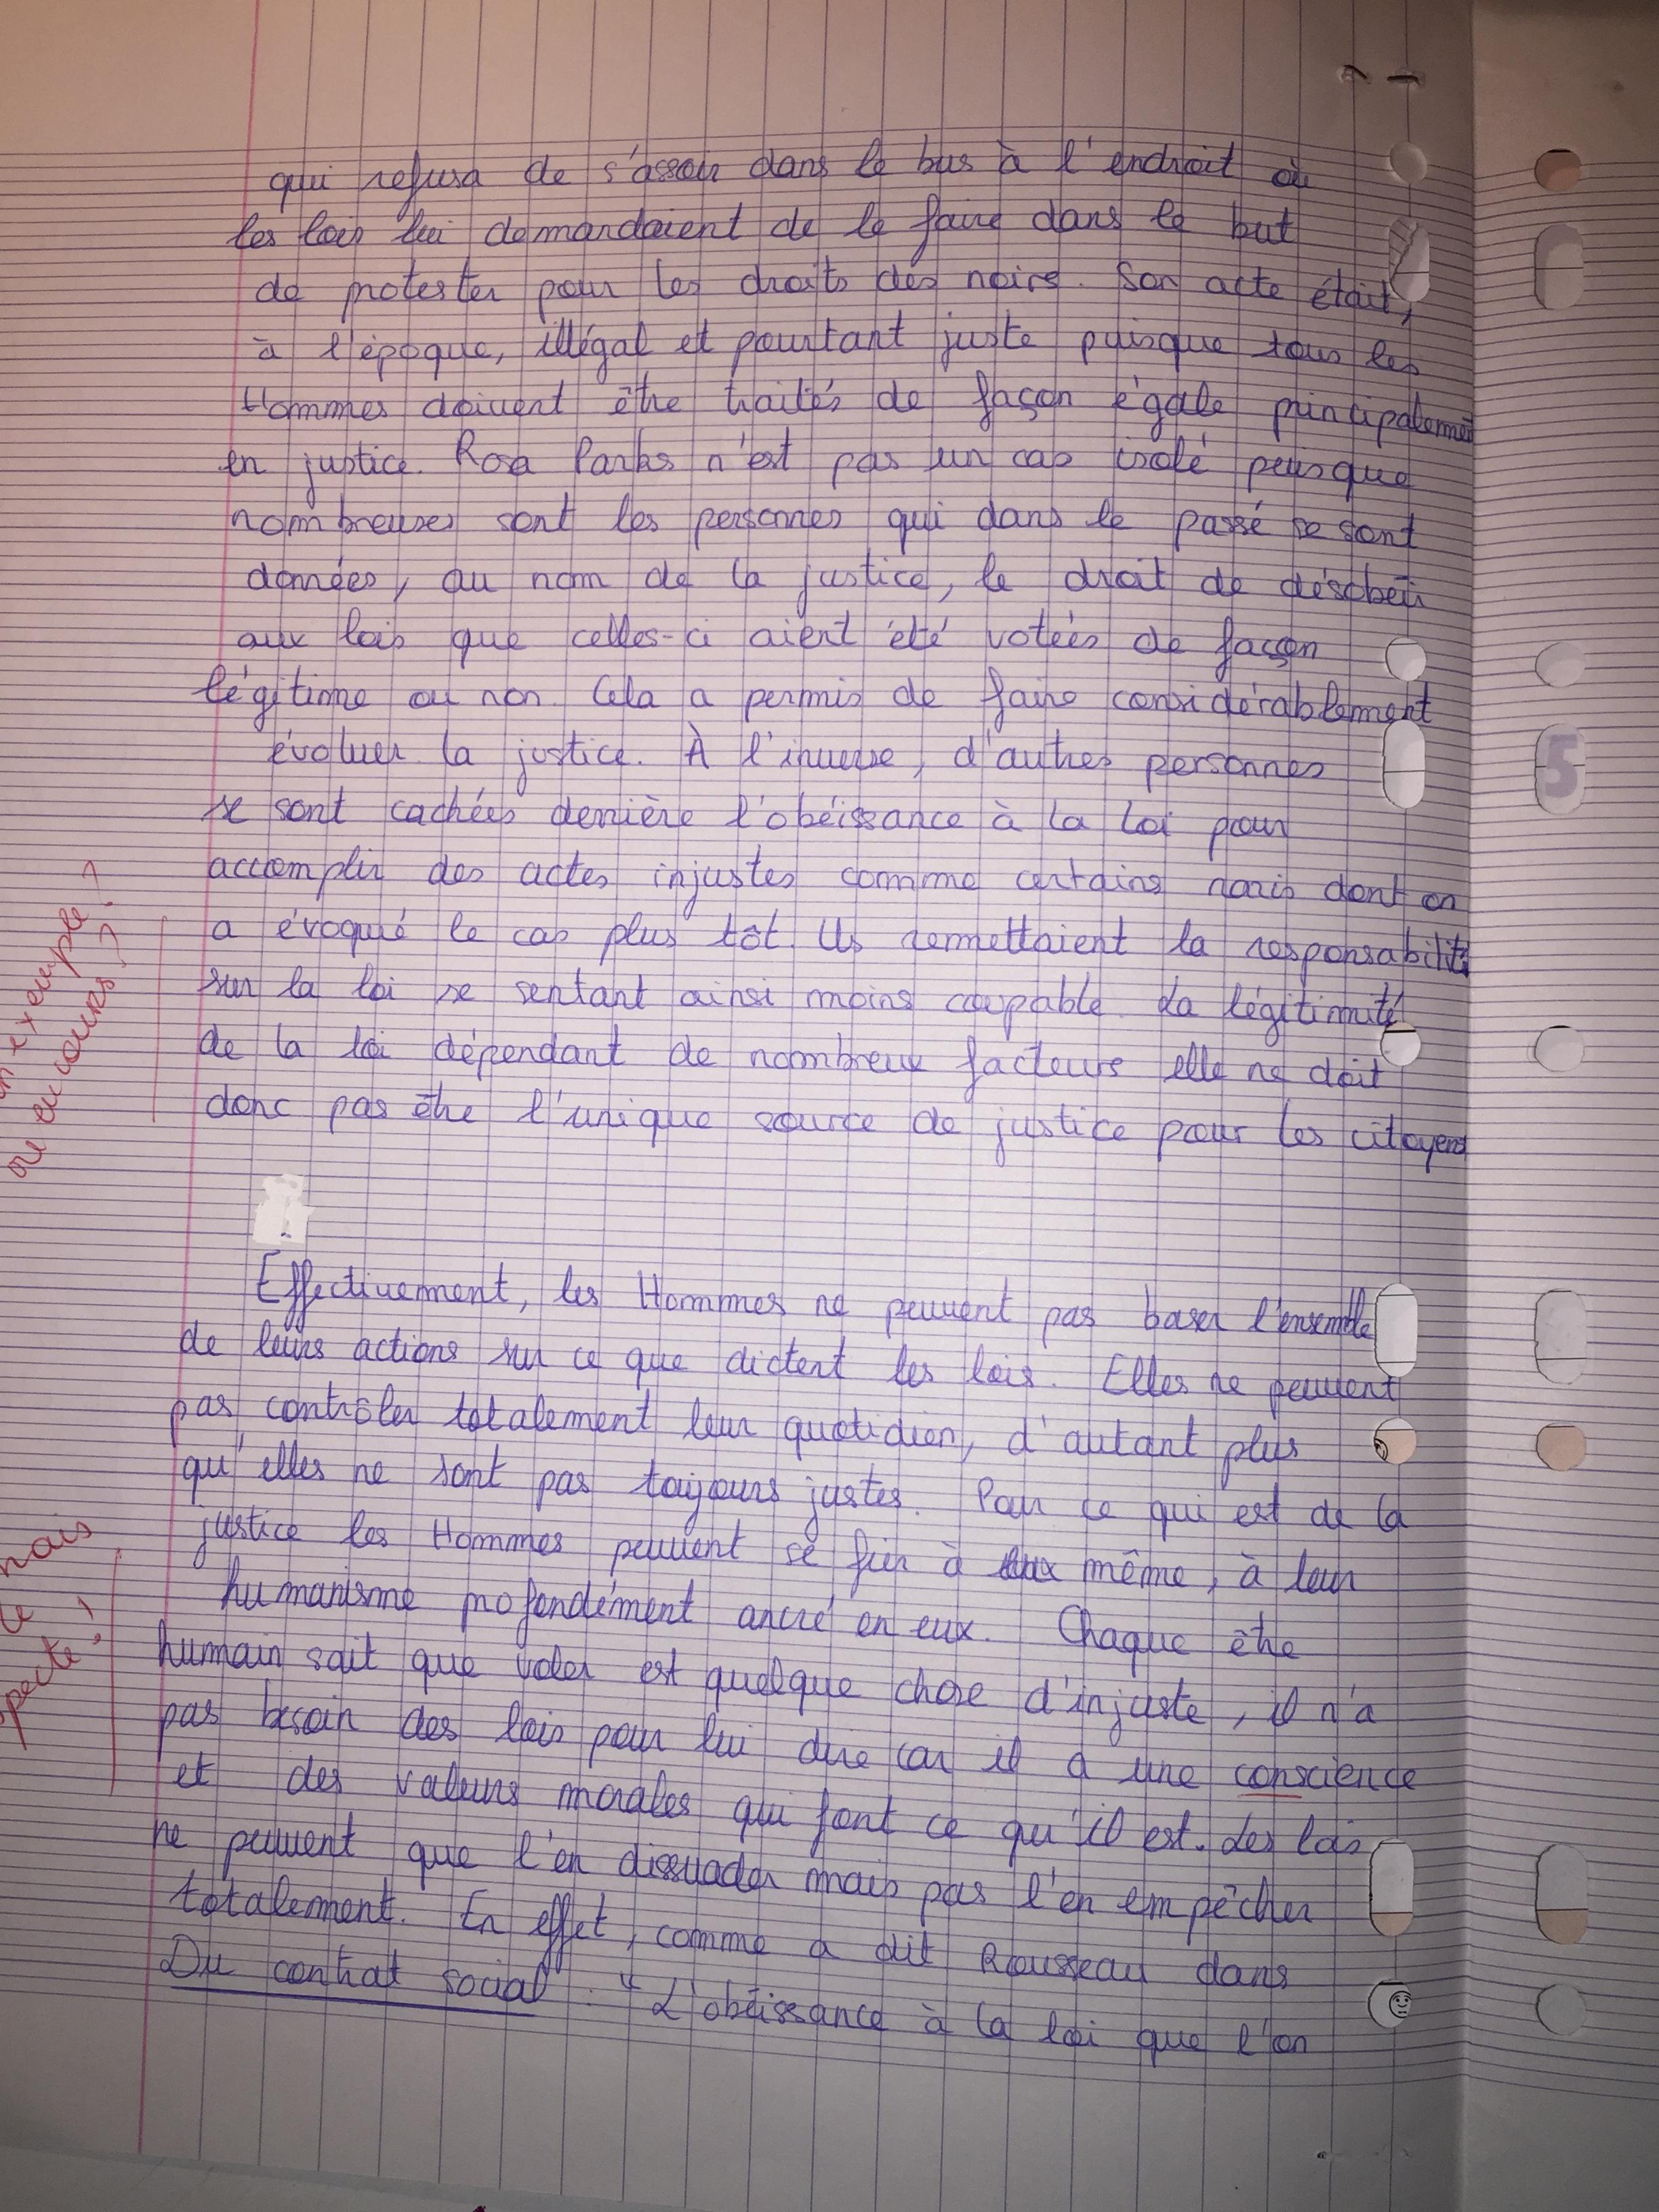 qui refusa de s'assoir dans le bus à l'endroit où
les lois lui demandaient de le faire dans le but
de protester pour les droits des noirs. Son acte était,
à l'époque, illégal et pourtant juste puisque tous les
Hommes doivent être traités de façon égale principalement
en justice. Rosa Parks n'est pas un cas isolé puisque
nombreuses sont les personnes qui dans le passé se sont
données, au nom de la justice, le droit de désobéir
aux lois que celles-ci aient été votées de façon
légitime ou non. Cela a permis de faire considérablement
évoluer la justice. À l'inverse, d'autres personnes
se sont cachées derrière l'obéissance à la loi pour
accomplir des actes injustes comme certains nazis dont on
a évoqué le cas plus tôt. Ils remettaient la responsabilité
sur la loi se sentant ainsi moins coupable. La légitimité
de la loi dépendant de nombreux facteurs elle ne doit
donc pas être l'unique source de justice pour les citoyens
exemple ?
ou en cours ?
Effectivement, les Hommes ne peuvent pas baser l'ensemble
de leurs actions sur ce que dictent les lois. Elles ne peuvent
pas contrôler totalement leur quotidien, d'autant plus
qu'elles ne sont pas toujours justes. Pour ce qui est de la
justice les Hommes peuvent se fier à eux même, à leur
humanisme profondément ancré en eux. Chaque être
humain sait que voler est quelque chose d'injuste, il n'a
pas besoin des lois pour lui dire car il a une conscience
et des valeurs morales qui font ce qu'il est. Les lois
ne peuvent que l'en dissuader mais pas l'en empêcher
totalement. En effet, comme a dit Rousseau dans
Du contrat social : "L'obéissance à la loi que l'on
mais
5